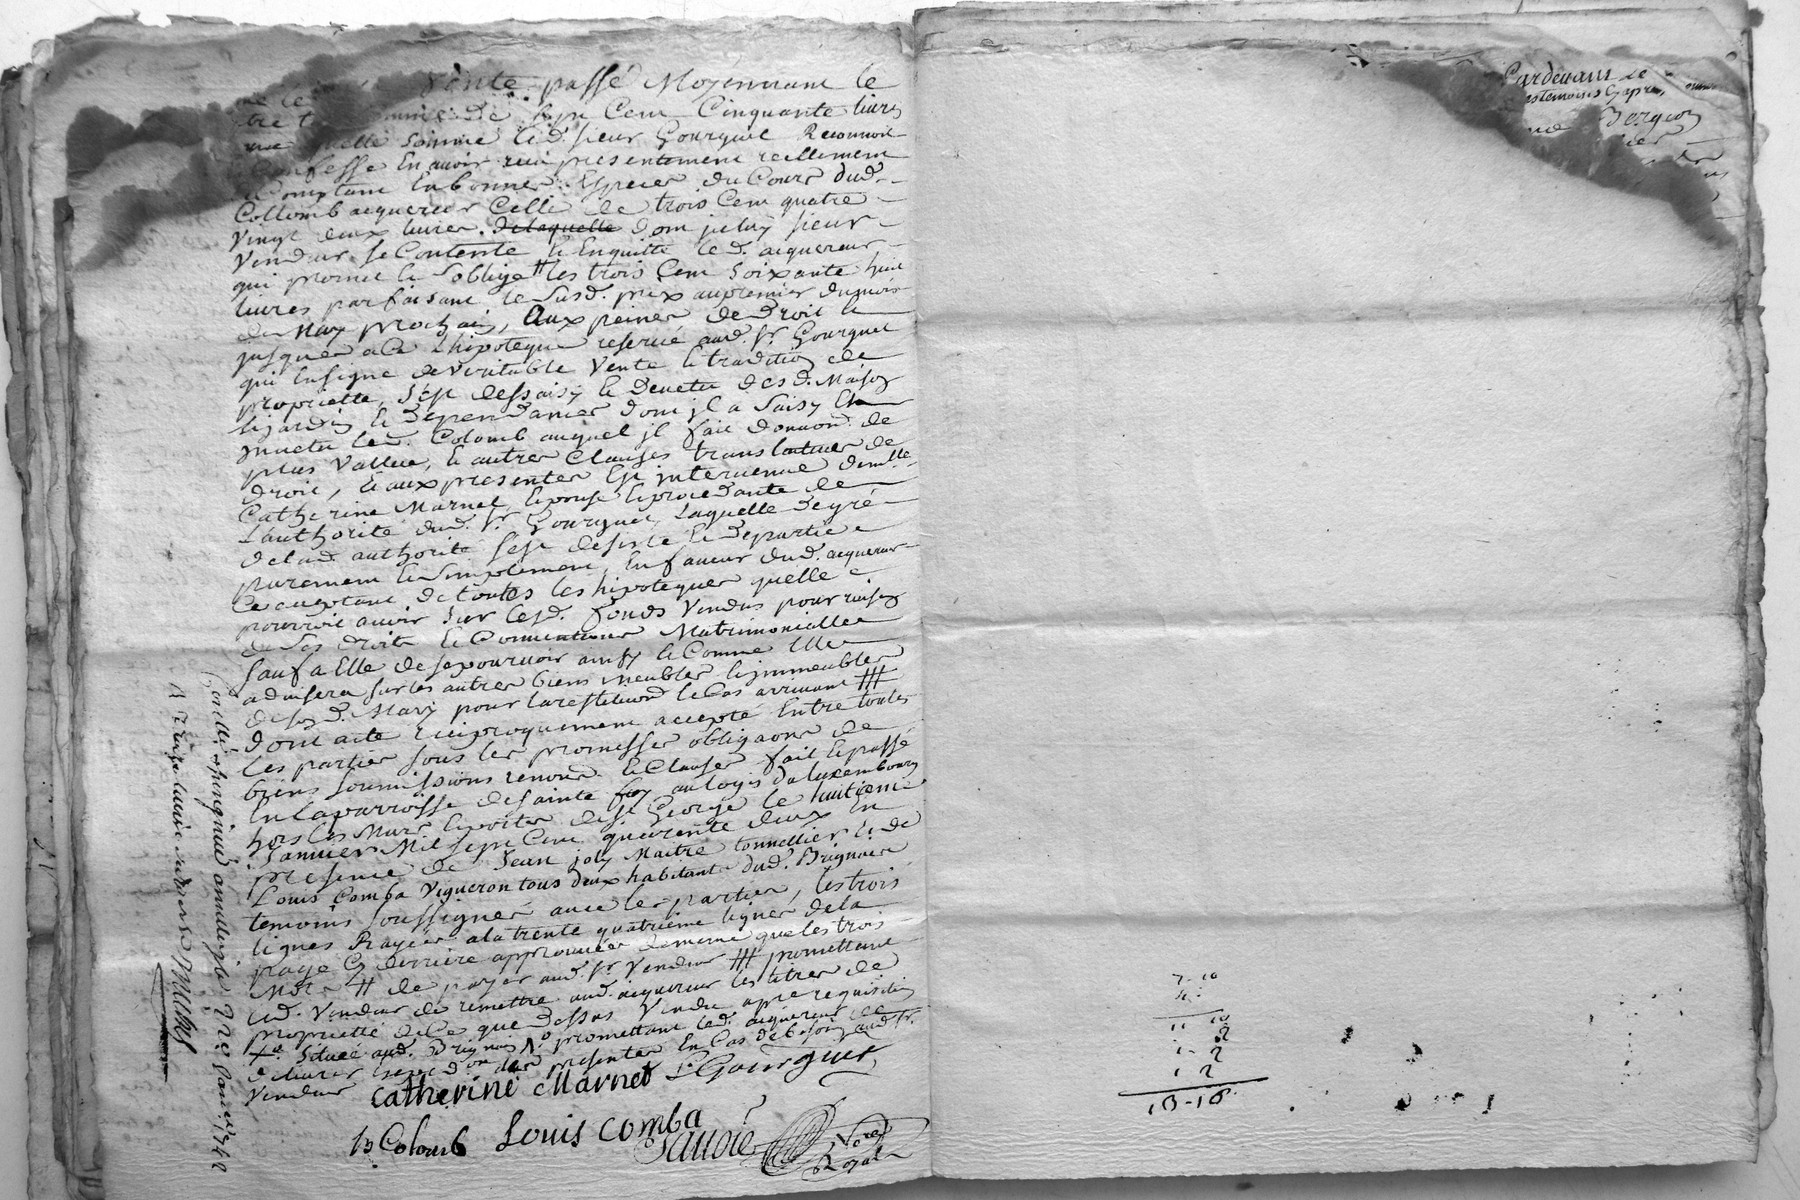 vente passé Moyennant le
somme de sept Cent Cinquante livres
laquelle somme led. sieur Gourguet Reconnoit
Confesse En avoir receu presentement reellement
Comptant En bonnes Especes du Cours dud.
Collomb acquereur Celle de trois Cent quatre
vingt deux livres. delaquelle dont jceluy sieur
Vendeur se Contente et Enquitte led. acquereur
qui promet et soblige # les trois Cent Soixante huit
livres parfaisant le Susd. prix aupremier dumois
de May prochain, Aux peines de Droit et
jusques a ce Lhipoteque reservé aud. Sr. Gourguet
qui Ensigne deveritable Vente et tradition de
propriette, sest dessaisy et Devetu desd. Maison
et jardin et Dependances dont jl a Saisy et
jnvetu led. Colomb auquel jl fait donnaon. de
plus vallue, et autres Clauses translatives de
droit, et aux presentes Est intervenue demlle.
Catherine Marnet Epouse et procedante de
Lauthorité dud. Sr. Gourguet, Laquelle degré
delad. authorité sest desiste et Departie
purement et Simplement, Enfaveur dud. acquereur
Ce acceptant de toutes les hipoteques quelle
pourroit avoir Sur lesd. fonds Vendus pour raison
de Ses droits et Conventions Matrimonialles
Sauf a Elle de se pourvoir ainsy et Comme Elle
advisera sur les autres biens meubles et jmmeubles
de sond. Mary pour la restitution le Cas arrivant ###
Dont acte reciproquement accepté Entre toutes
les parties sous les promesses obligaons de
biens soumissions renond. et Clauses fait et passé
En la parroisse de sainte foy au logis du luxembourg
hors les Murs et portes de st George le huitieme
Janvier Mil sept Cent quarente deux En
presence de Jean joly Maitre tonnellier et de
Louis Comba Vigneron tous deux habitants dud. Brignais
temoins soussignés avec les parties, les trois
lignes Rayées a la trente quatrieme lignes de la
page Cy derriere approuvées de meme que les trois
Mots # de payer aud. Sr. Vendeur ### promettant
led. Vendeur de remettre aud. acquereur les titres de
propriette de Ce que Dessus Vendu apre requisition
situeé aud. Brignais promettant led. acquereur de
delivrer des presentes En Cas de besoin aud. Sr.
Vendeur
Catherine Marnet Gourguet
B Colomb Louis Comba
Sauvoie Nore.
Royal
Controllé a
Pardevant le
temoins Cy apres,
Bergeon
7-10
11 10
2
1-2
1 2